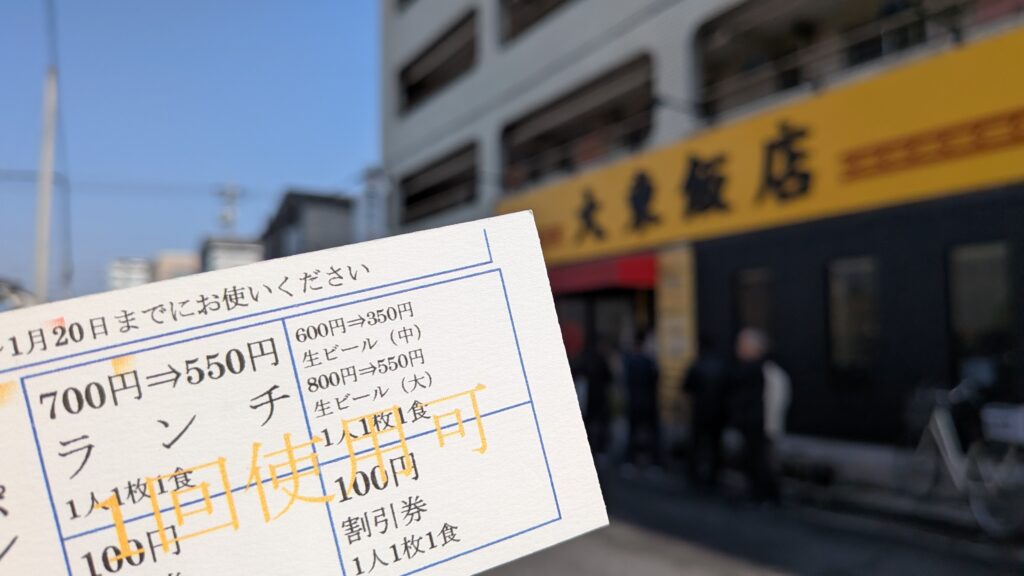 大東飯店
1月20日までにお使いください
700円⇒550円
ランチ
1人1枚1食
600円⇒350円
生ビール（中）
800円⇒550円
生ビール（大）
1人1枚1食
100円
100円
割引券
1人1枚1食
1回使用可